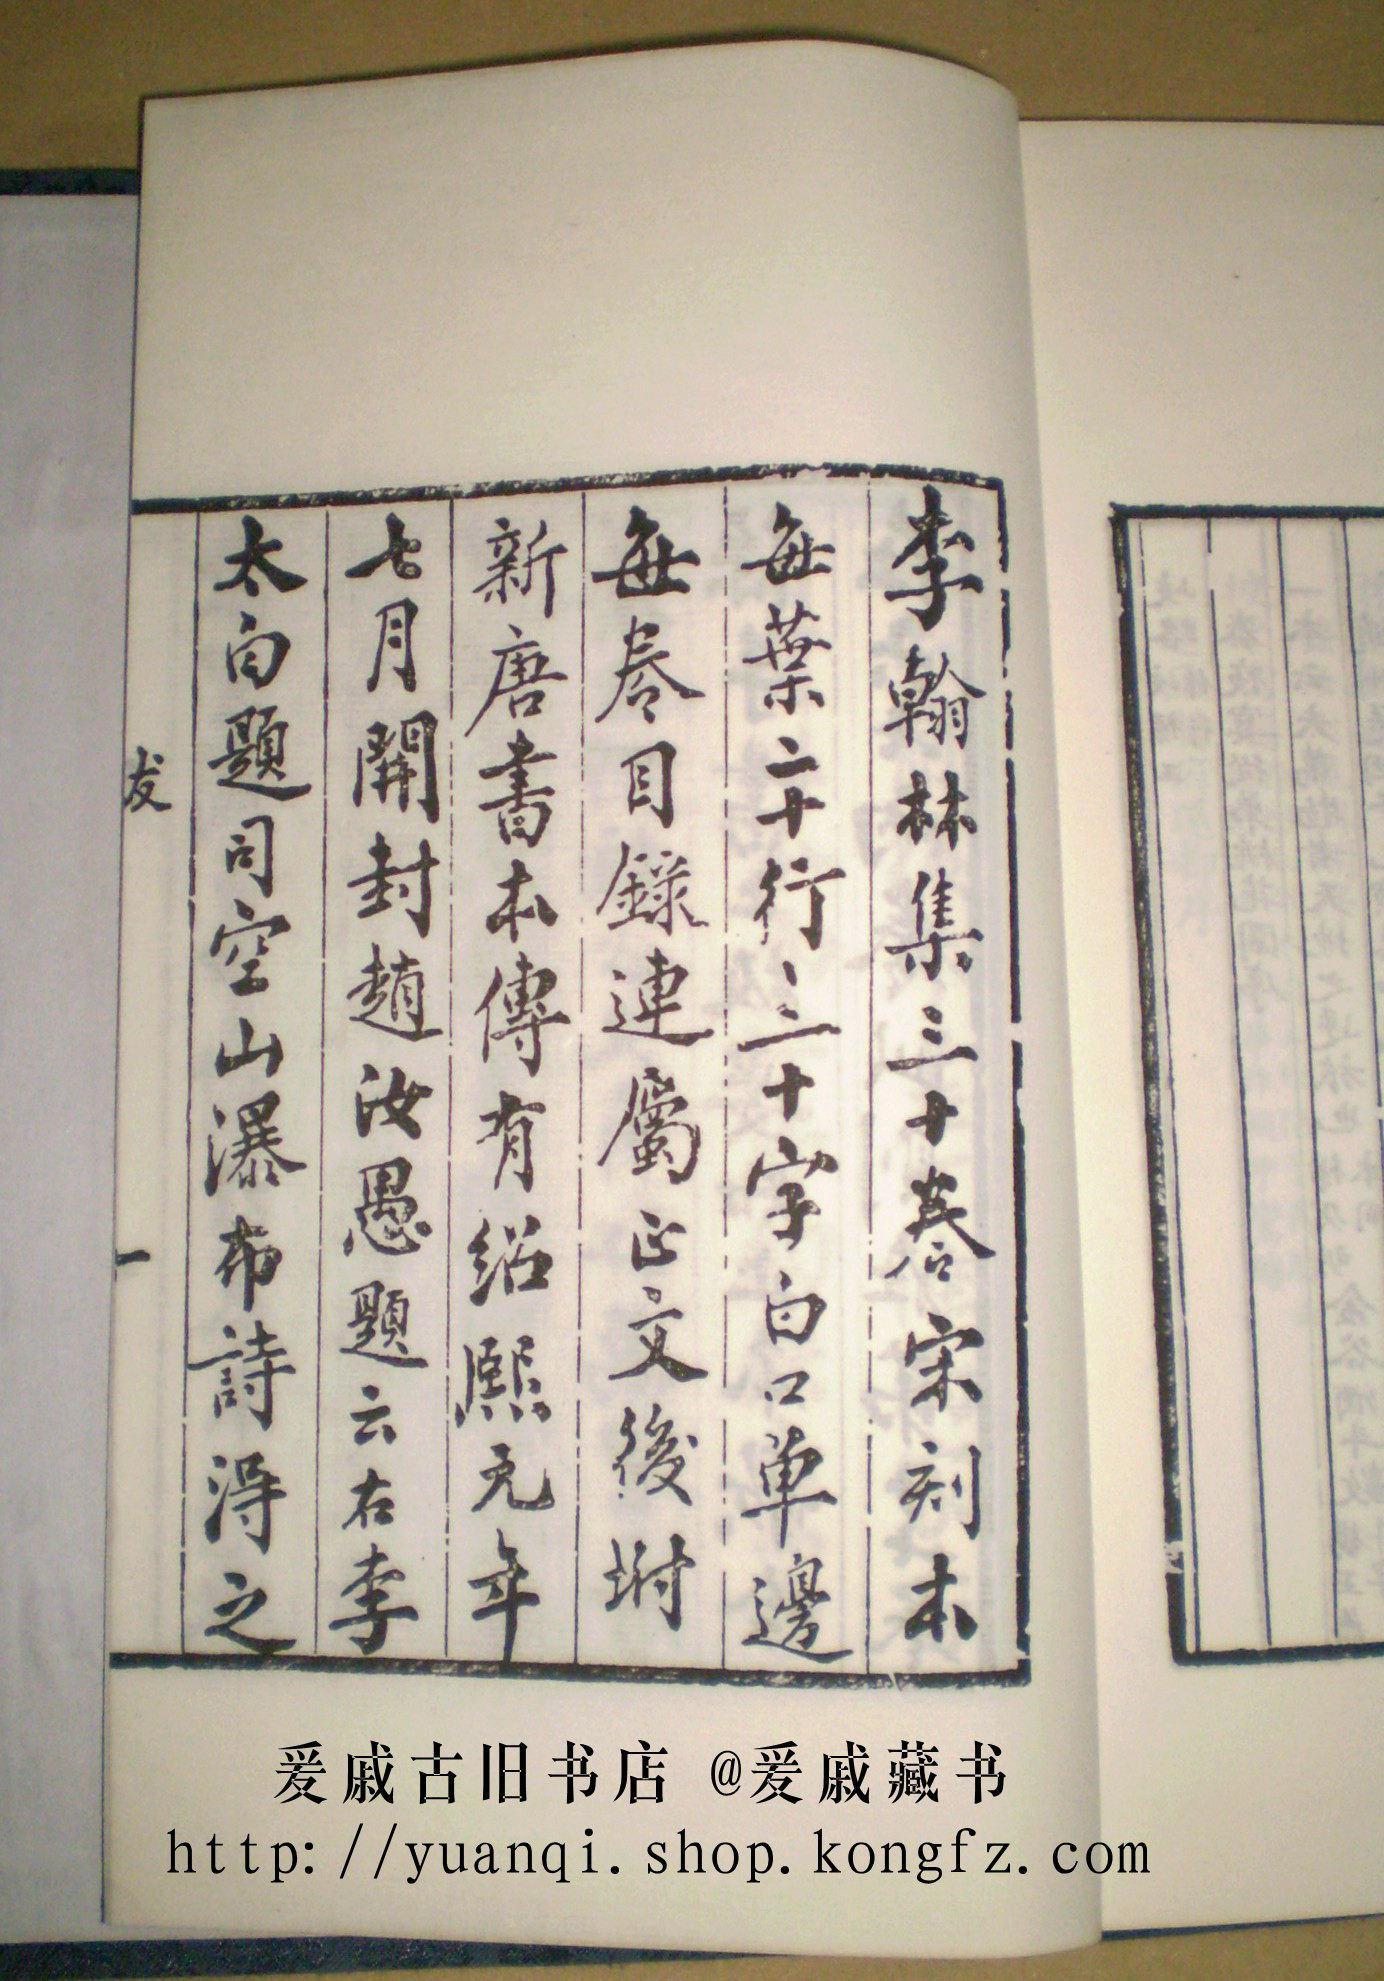 李翰林集三十卷宋刻本
每葉二十行行二十字白口單邊
每卷目錄連屬正文後坿
新唐書本傳有紹熙元年
七月開封趙汝愚題云右李
太白題司空山瀑布詩淂之
友
一
爰戚古旧书店 @爰戚藏书
http://yuanqi.shop.kongfz.com